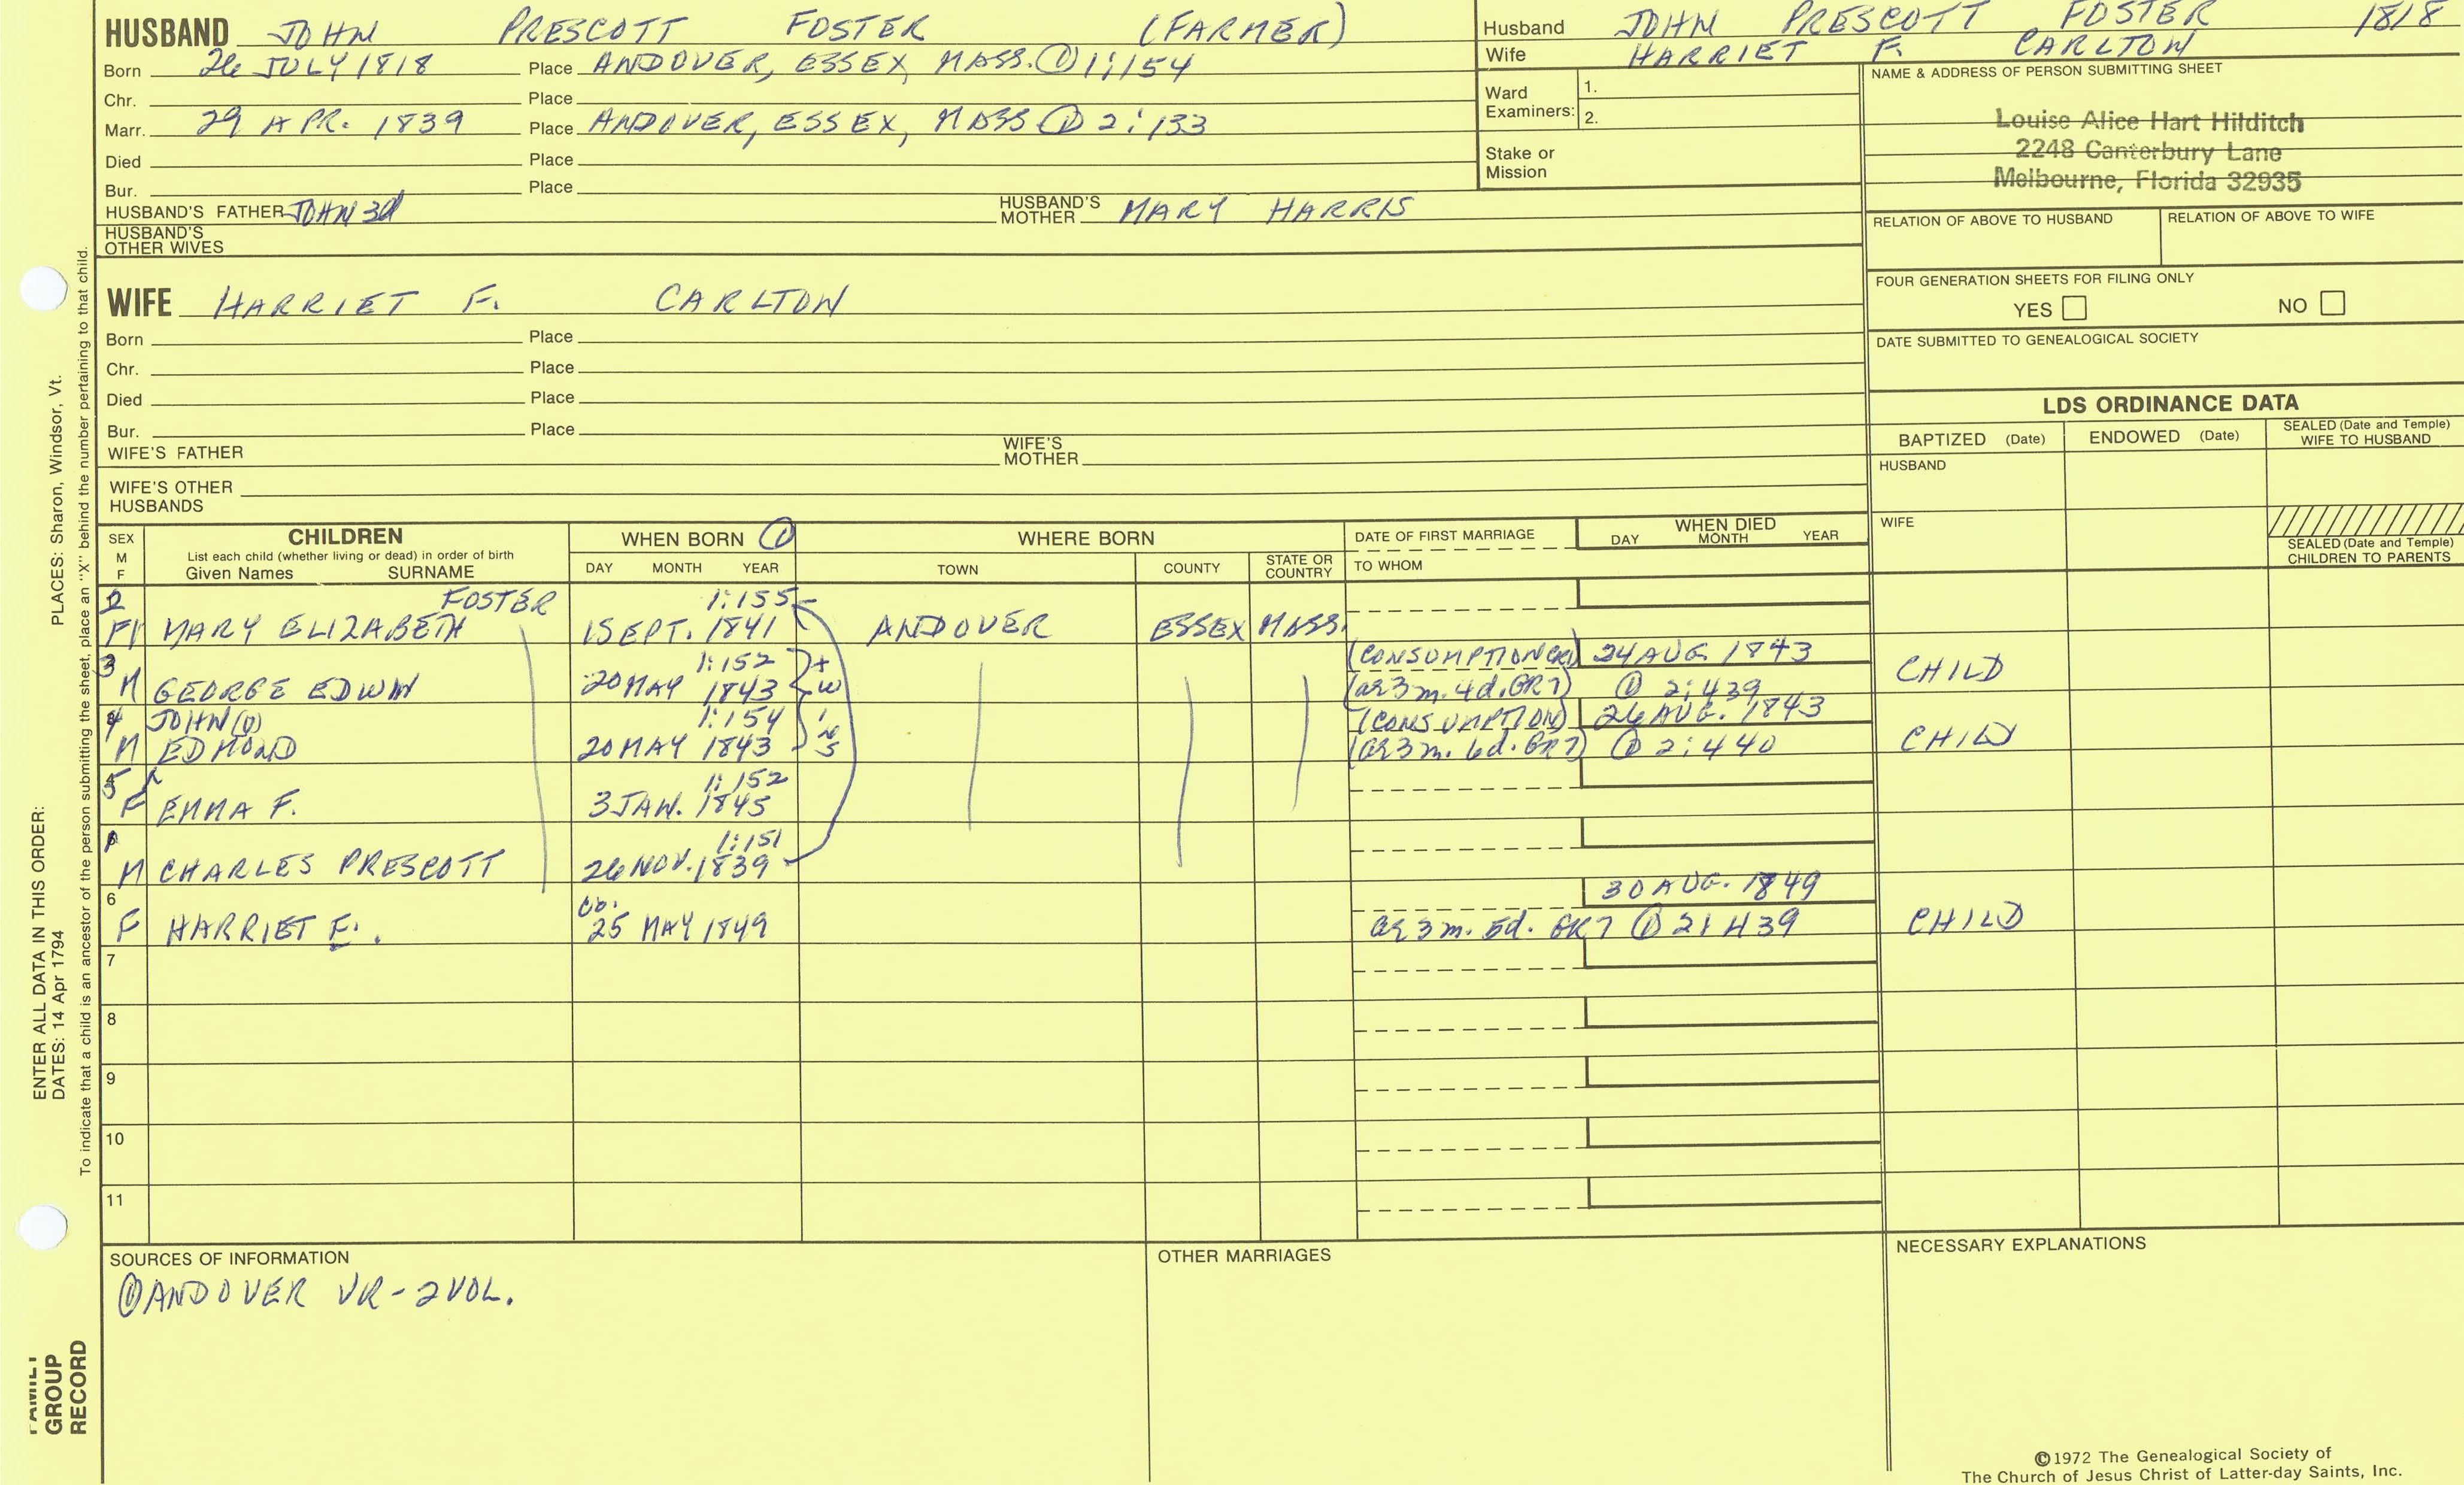 HUSBAND JOHN PRESCOTT FOSTER (FARMER)
Born 26 JULY 1818 Place ANDOVER, ESSEX, MASS. ① 1:154
Chr. Place
Marr. 29 APR. 1839 Place ANDOVER, ESSEX, MASS ① 2:133
Died Place
Bur. Place
HUSBAND'S FATHER JOHN 3d HUSBAND'S MOTHER MARY HARRIS
HUSBAND'S OTHER WIVES
Husband JOHN PRESCOTT FOSTER 1818
Wife HARRIET F. CARLTON
Ward Examiners: 1.
2.
Stake or Mission
NAME & ADDRESS OF PERSON SUBMITTING SHEET
Louise Alice Hart Hilditch
2248 Canterbury Lane
Melbourne, Florida 32935
RELATION OF ABOVE TO HUSBAND RELATION OF ABOVE TO WIFE
FOUR GENERATION SHEETS FOR FILING ONLY
YES NO
DATE SUBMITTED TO GENEALOGICAL SOCIETY
WIFE HARRIET F. CARLTON
Born Place
Chr. Place
Died Place
Bur. Place
WIFE'S FATHER WIFE'S MOTHER
WIFE'S OTHER HUSBANDS
LDS ORDINANCE DATA
BAPTIZED (Date) ENDOWED (Date) SEALED (Date and Temple) WIFE TO HUSBAND
HUSBAND
WIFE
SEALED (Date and Temple) CHILDREN TO PARENTS
SEX M F CHILDREN WHEN BORN ① WHERE BORN DATE OF FIRST MARRIAGE WHEN DIED
List each child (whether living or dead) in order of birth
Given Names SURNAME DAY MONTH YEAR TOWN COUNTY STATE OR COUNTRY TO WHOM DAY MONTH YEAR
2 FOSTER 1:155
F MARY ELIZABETH 1 SEPT. 1841 ANDOVER ESSEX MASS.
3 1:152 (CONSUMPTION CR1) 24 AUG. 1843
M GEORGE EDWIN 20 MAY 1843 (ag 3 m. 4 d. GR7) ① 2:439 CHILD
twins
4 JOHN (D) 1:154 (CONSUMPTION) 26 AUG. 1843
M EDMOND 20 MAY 1843 (ag 3 m. 6 d. GR7) ① 2:440 CHILD
5 1:152
F EMMA F. 3 JAN. 1845
1 1:151
M CHARLES PRESCOTT 26 NOV. 1839
6 cb. 30 AUG. 1849
F HARRIET E. 25 MAY 1849 ag 3 m. 5 d. GR7 ① 2:439 CHILD
7
8
9
10
11
SOURCES OF INFORMATION
① ANDOVER VR - 2 VOL.
OTHER MARRIAGES
NECESSARY EXPLANATIONS
©1972 The Genealogical Society of
The Church of Jesus Christ of Latter-day Saints, Inc.
ENTER ALL DATA IN THIS ORDER:
DATES: 14 Apr 1794 PLACES: Sharon, Windsor, Vt.
To indicate that a child is an ancestor of the person submitting the sheet, place an "X" behind the number pertaining to that child.
FAMILY
GROUP
RECORD